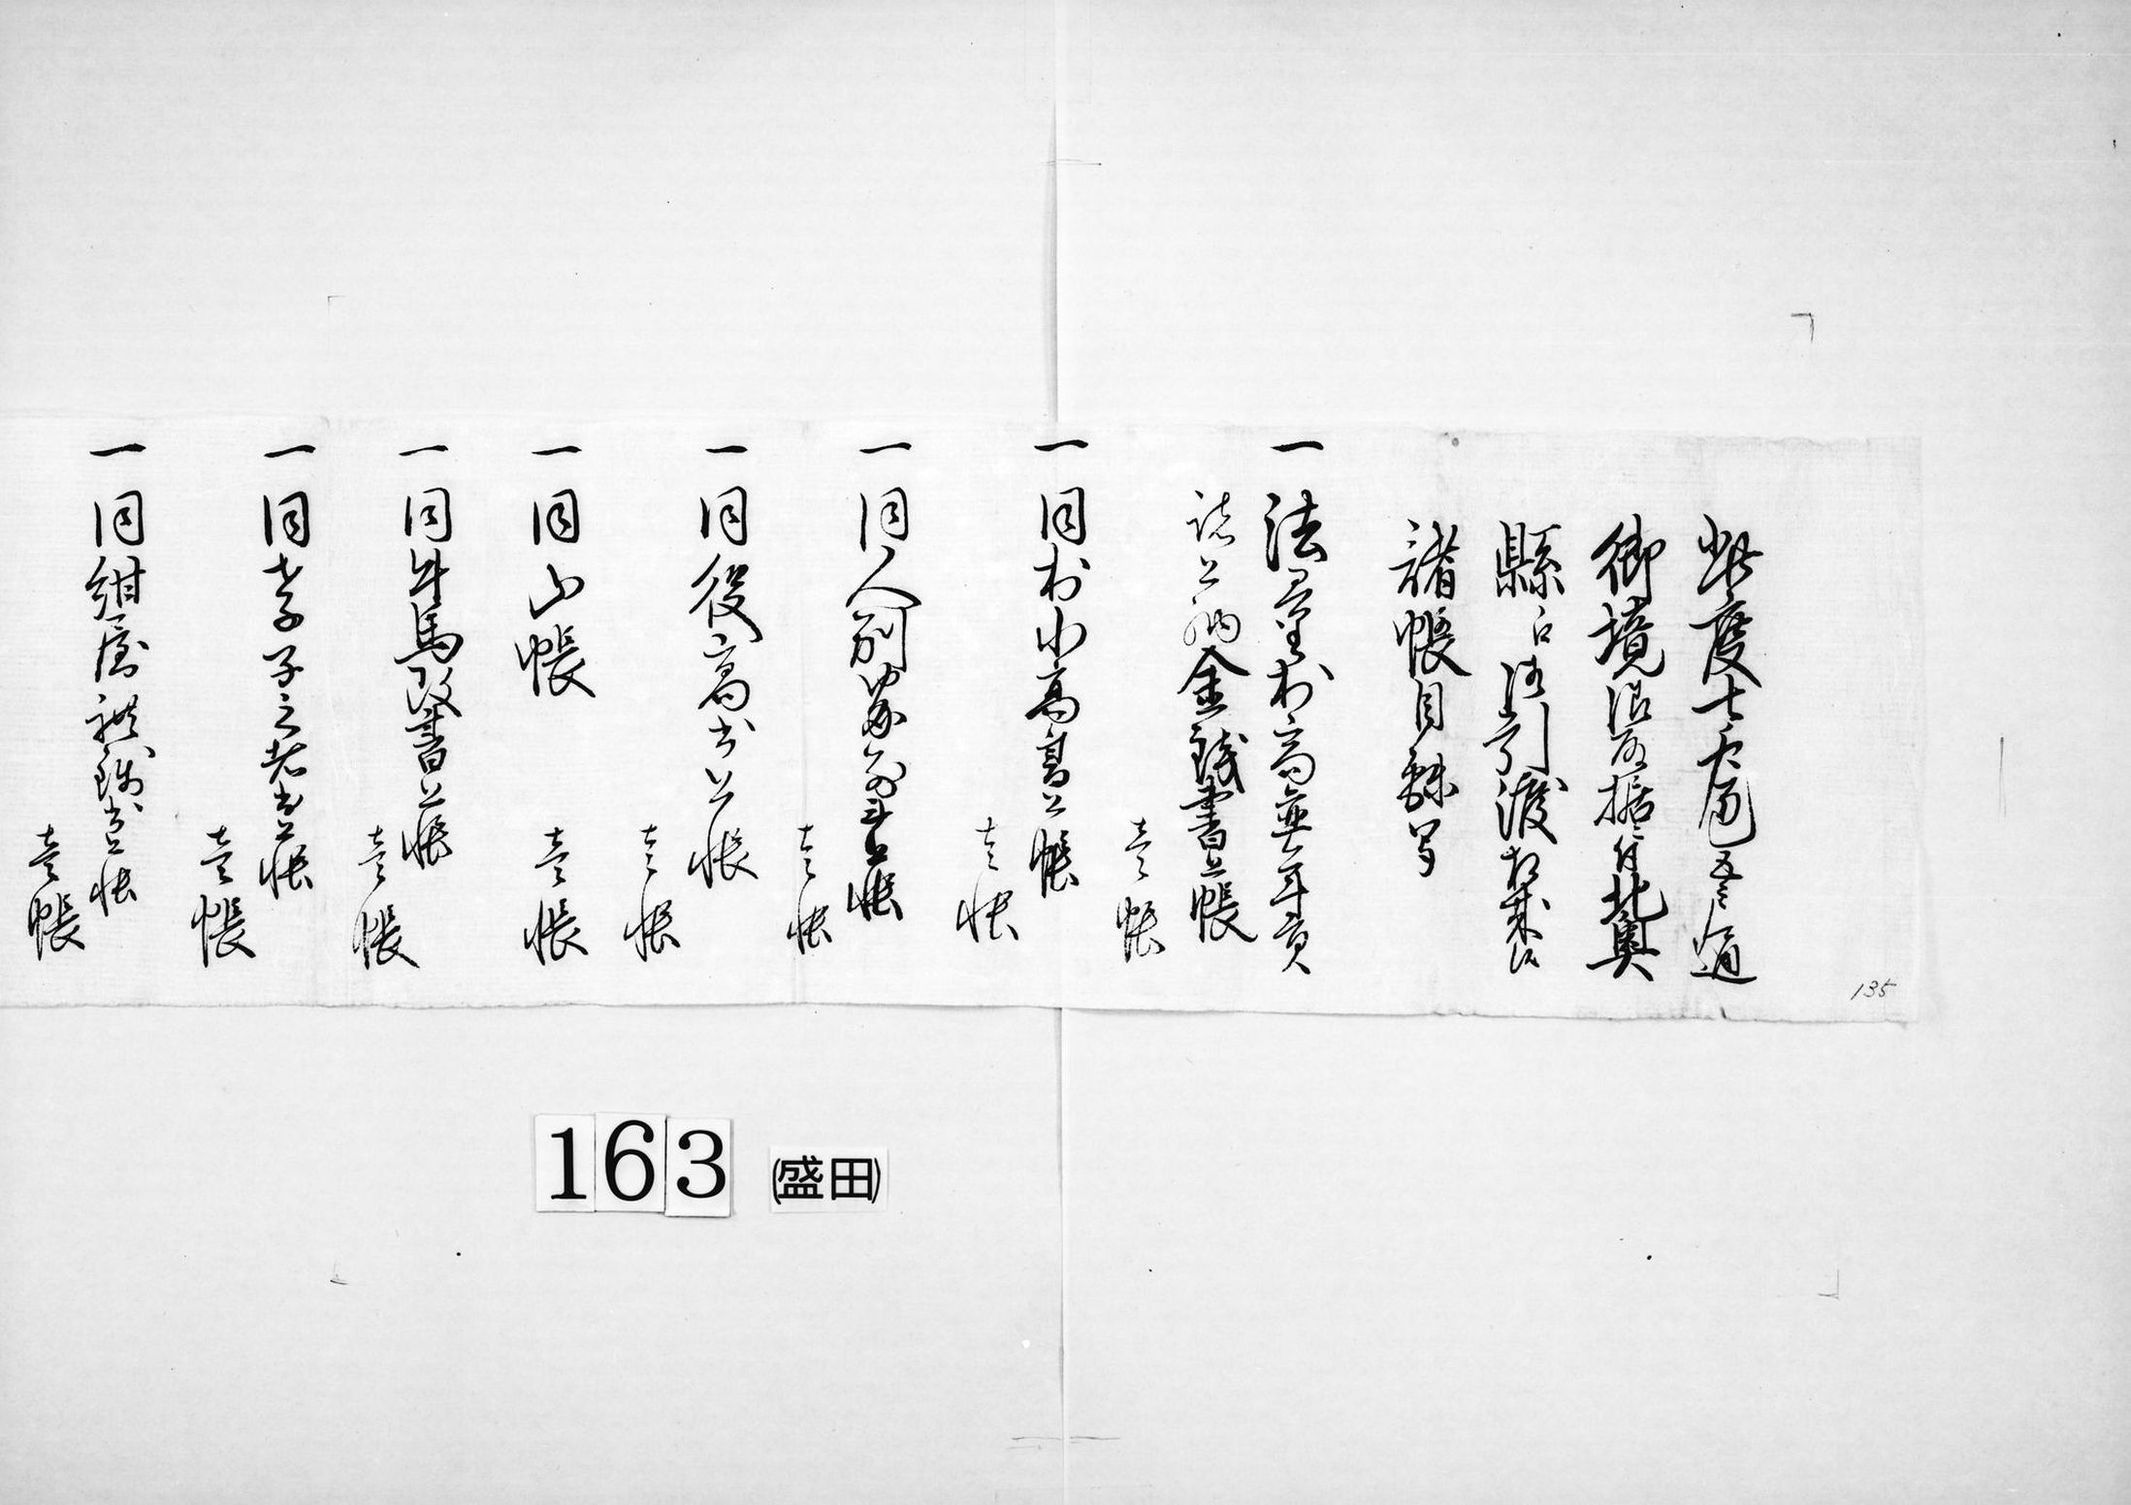 此度七戸通
御境据付北奥
縣江御引渡相成候
諸帳目録写
一 法量村高並年貢
諸上納金銭書上帳
壱帳
一 同村小高書上帳
壱帳
一 同人別家数書上帳
壱帳
一 同役高書上帳
壱帳
一 同山帳
壱帳
一 同牛馬改書上帳
壱帳
一 同孝子之者書上帳
壱帳
一 同紺屋役銭書上帳
壱帳
135
163 (盛田)